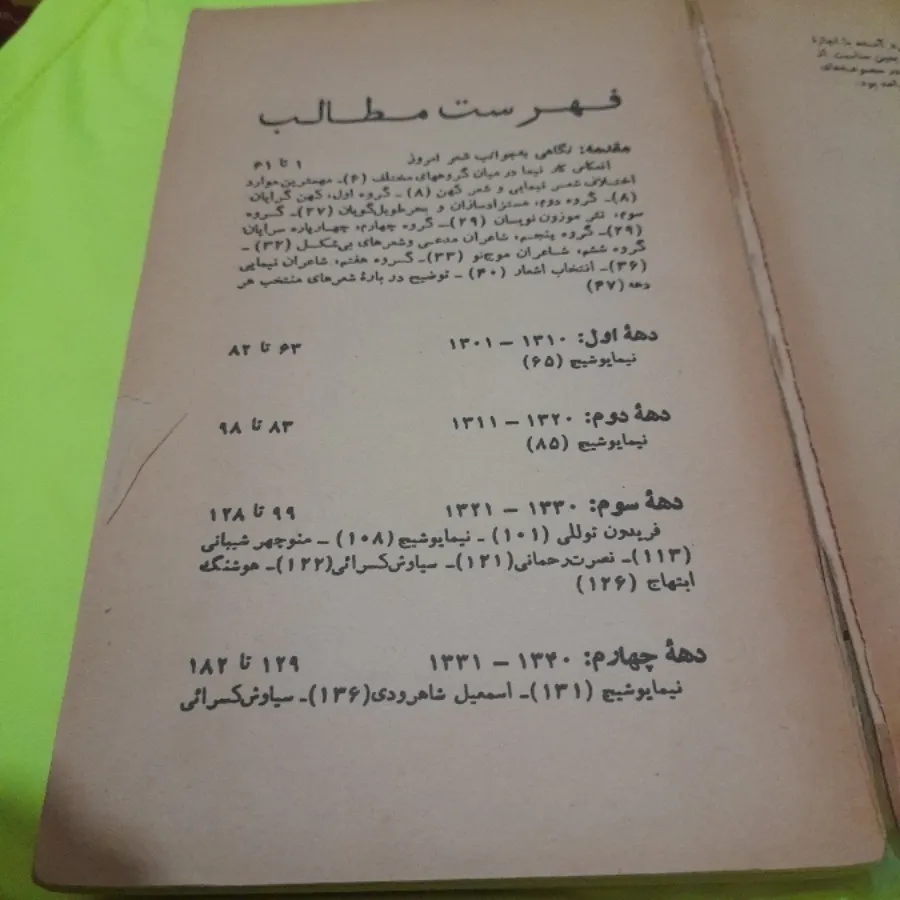 فهرست مطالب
مقدمه: نگاهی به‌جوانب شعر امروز ۱ تا ۶۱
انعکاس کار نیما در میان گروههای مختلف (۶)ـ مهمترین موارد
اختلاف شعر نیمایی و شعر کهن (۸) ـ گروه اول، کهن گرایان
(۸)ـ گروه دوم، مستزادسازان و بحرطویل‌گویان (۲۷)ـ گروه
سوم، نثر موزون نویسان (۲۹)ـ گروه چهارم، چهارپاره سرایان
(۲۹)ـ گروه پنجم، شاعران مدعی و شعرهای بی‌شکل (۳۲) ـ
گروه ششم، شاعران موج‌نو (۳۳)ـ گروه هفتم، شاعران نیمایی
(۳۶)ـ انتخاب اشعار (۴۰) ـ توضیح در بارهٔ شعرهای منتخب هر
دهه (۴۷)
دههٔ اول: ۱۳۱۰ – ۱۳۰۱ ۶۳ تا ۸۲
نیمایوشیج (۶۵)
دههٔ دوم: ۱۳۲۰ – ۱۳۱۱ ۸۳ تا ۹۸
نیمایوشیج (۸۵)
دههٔ سوم: ۱۳۳۰ – ۱۳۲۱ ۹۹ تا ۱۲۸
فریدون توللی (۱۰۱) ـ نیمایوشیج (۱۰۸) ـ منوچهر شیبانی
(۱۱۳)ـ نصرت‌رحمانی(۱۲۱)ـ سیاوش‌کسرائی(۱۲۲)ـ هوشنگ
ابتهاج (۱۲۶)
دههٔ چهارم: ۱۳۴۰ – ۱۳۳۱ ۱۲۹ تا ۱۸۲
نیمایوشیج (۱۳۱)ـ اسمعیل شاهرودی(۱۳۶)ـ سیاوش‌کسرائی